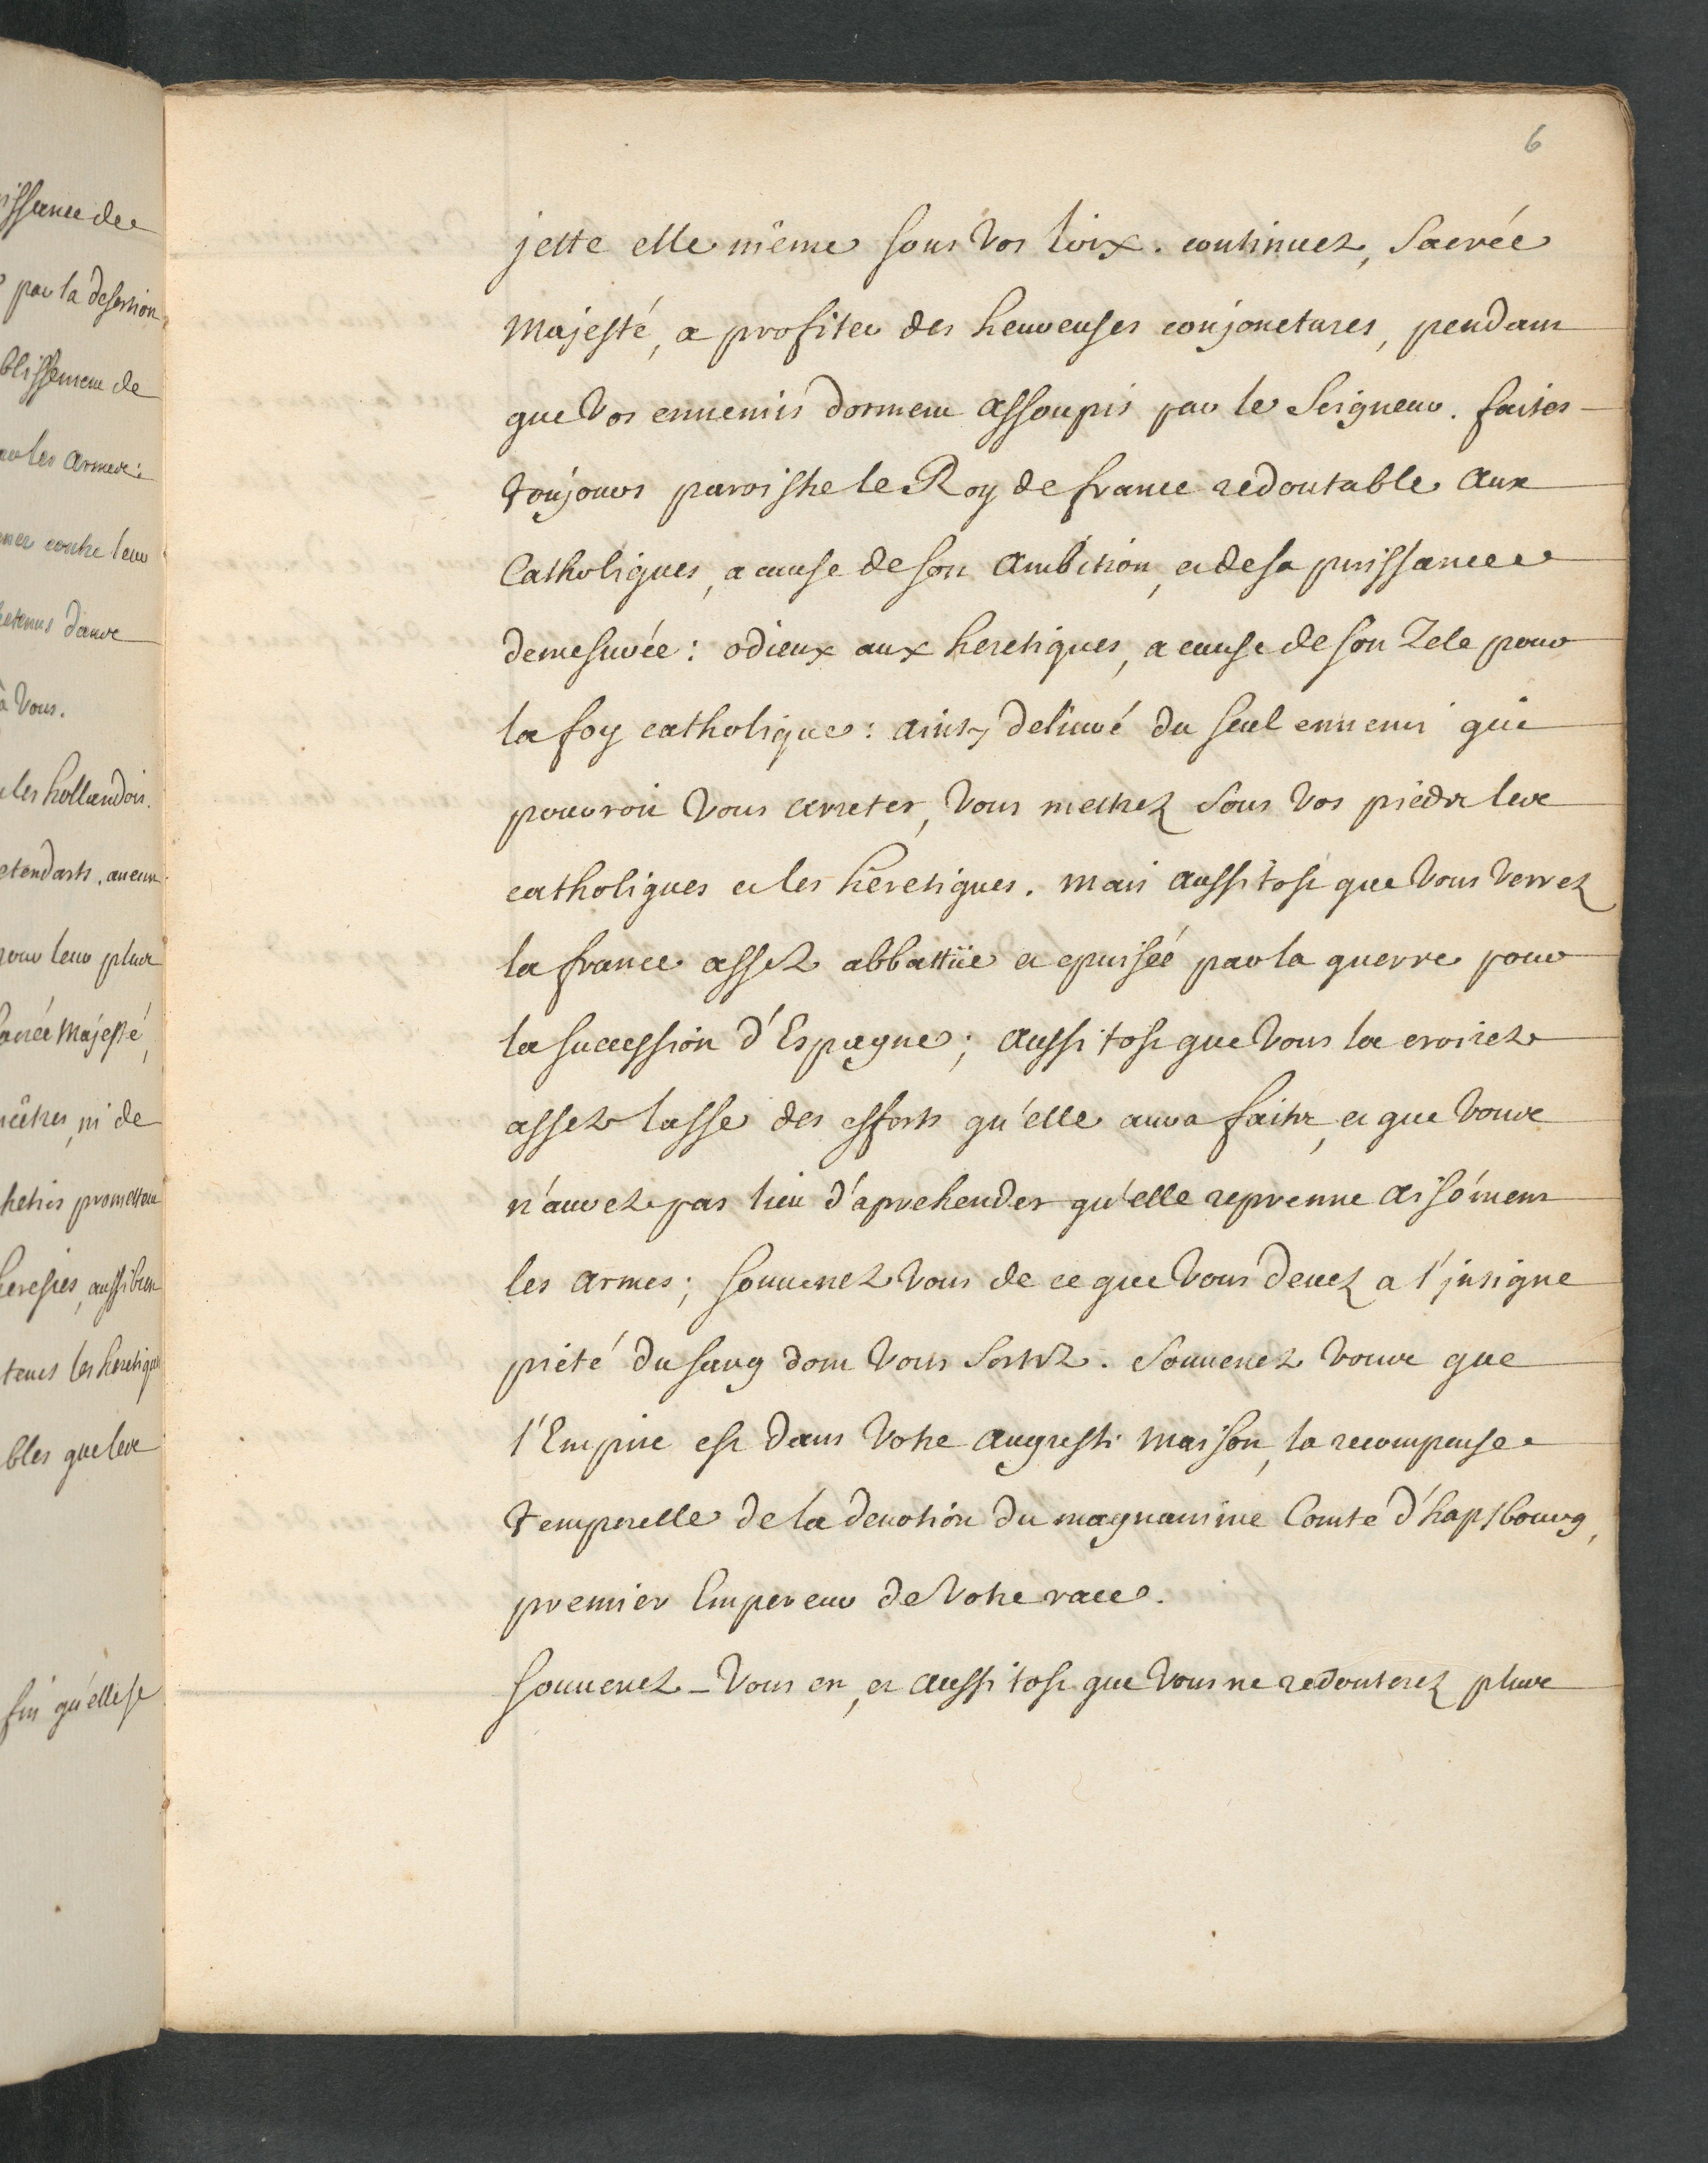 6
jette elle même sous vos loix. continuez, Sacrée
Majesté, a profiter des heureuses conjonctures, pendant
que vos ennemis dorment assoupis par le Seigneur. faites
toujours paroistre le Roy de france redoutable aux
Catholiques, a cause de son ambition, et de sa puissance
demesurée: odieux aux heretiques, a cause de son Zele pour
la foy catholique: ainsy deliuré du seul ennemi qui
pouvroit vous arreter, vous mettrez sous vos pieds les
catholiques et les hèretiques. mais aussitost que vous verrez
la france assez abbattüe et epuisée par la guerre pour
la succession d'Espagne; aussitost que vous la croirez
assez lasse des efforts qu'elle aura faits, et que vous
n'aurez pas lieu d'aprehender qu'elle reprenne aisément
les armes; souuenez vous de ce que vous deuez a l'insigne
piété du sang dont vous sortez. Souuenez vous que
l'Empire est dans votre auguste maison, la recompense
temporelle de la deuotion du magnanime Comte d'hapsbourg,
premier Empereur de votre race.
souuenez-vous en, et aussitost que vous ne redouterez plus
issance de
par la desertion
blissement de
les armes:
contre leur
dans
à vous.
les hollandois.
etendarts. aucun
pour leur plus
Sacrée Majesté,
ni de
promettent
heresies, aussi bien
les heretiques
bles que les
fin qu'elle se